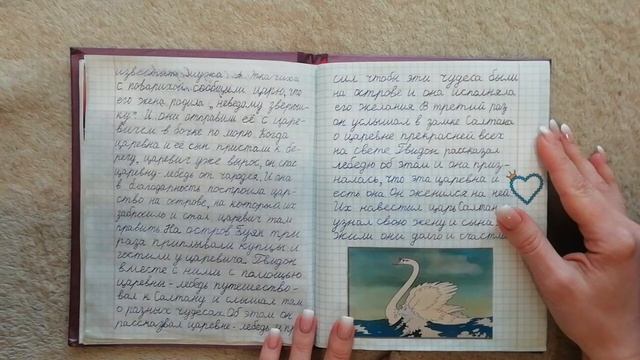 известить мужа. А ткачиха
с поварихой сообщили царю, что
его жена родила „неведому зверюш-
ку". И они отправили её с царе-
вичем в бочке по морю. Когда
царевна и её сын пристали к бе-
регу, царевич уже вырос, он спас
царевну-лебедь от чародея. И она
в благодарность построила цар-
ство на острове, на который их
забросило и стал царевич там
править. На остров Буян три
раза приплывали купцы и
гостили у царевича. Гвидон
вместе с ними с помощью
царевны-лебедь путешество-
вал к Салтану и слышал там
о разных чудесах. Об этом он
рассказал царевне-лебедь и пр
сил чтобы эти чудеса были
на острове и она исполняла
его желания. В третий раз
он услышал в замке Салтана
о царевне прекрасней всех
на свете. Гвидон рассказал
лебедю об этом и она приз-
налась, что эта царевна и
есть она. Он женился на ней.
Их навестил царь Салтан
узнал свою жену и сына
жили они долго и счастли